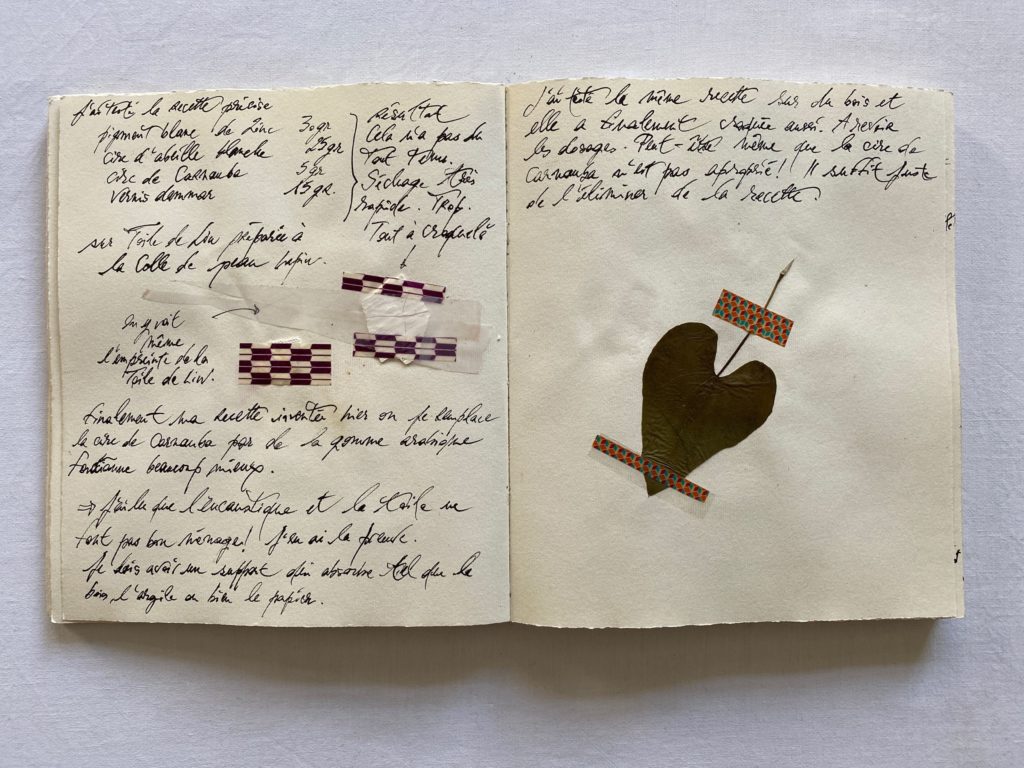 J'ai testé la recette précise
pigment blanc de Zinc 30gr
cire d'abeille blanche 25gr
cire de Carnauba 5gr
vernis dammar 15gr.
Résultat
Cela n'a pas du
tout tenu.
Séchage très
rapide. Trop.
Tout a craquelé
sur Toile de Lin préparée à
la Colle de peau lapin.
on y voit
même
l'empreinte de la
Toile de Lin.
finalement ma recette inventée hier où je remplace
la cire de Carnauba par de la gomme arabique
fonctionne beaucoup mieux.
⇒ J'ai lu que l'encaustique et la toile ne
font pas bon ménage! J'en ai la preuve.
Je dois avoir un support qui absorbe tel que le
bois, l'argile ou bien le papier.
J'ai testé la même recette sur du bois et
elle a finalement craquelée aussi. A revoir
les dosages. Peut-être même que la cire de
Carnauba n'est pas aproprié! Il suffit juste
de l'éliminer de la recette.